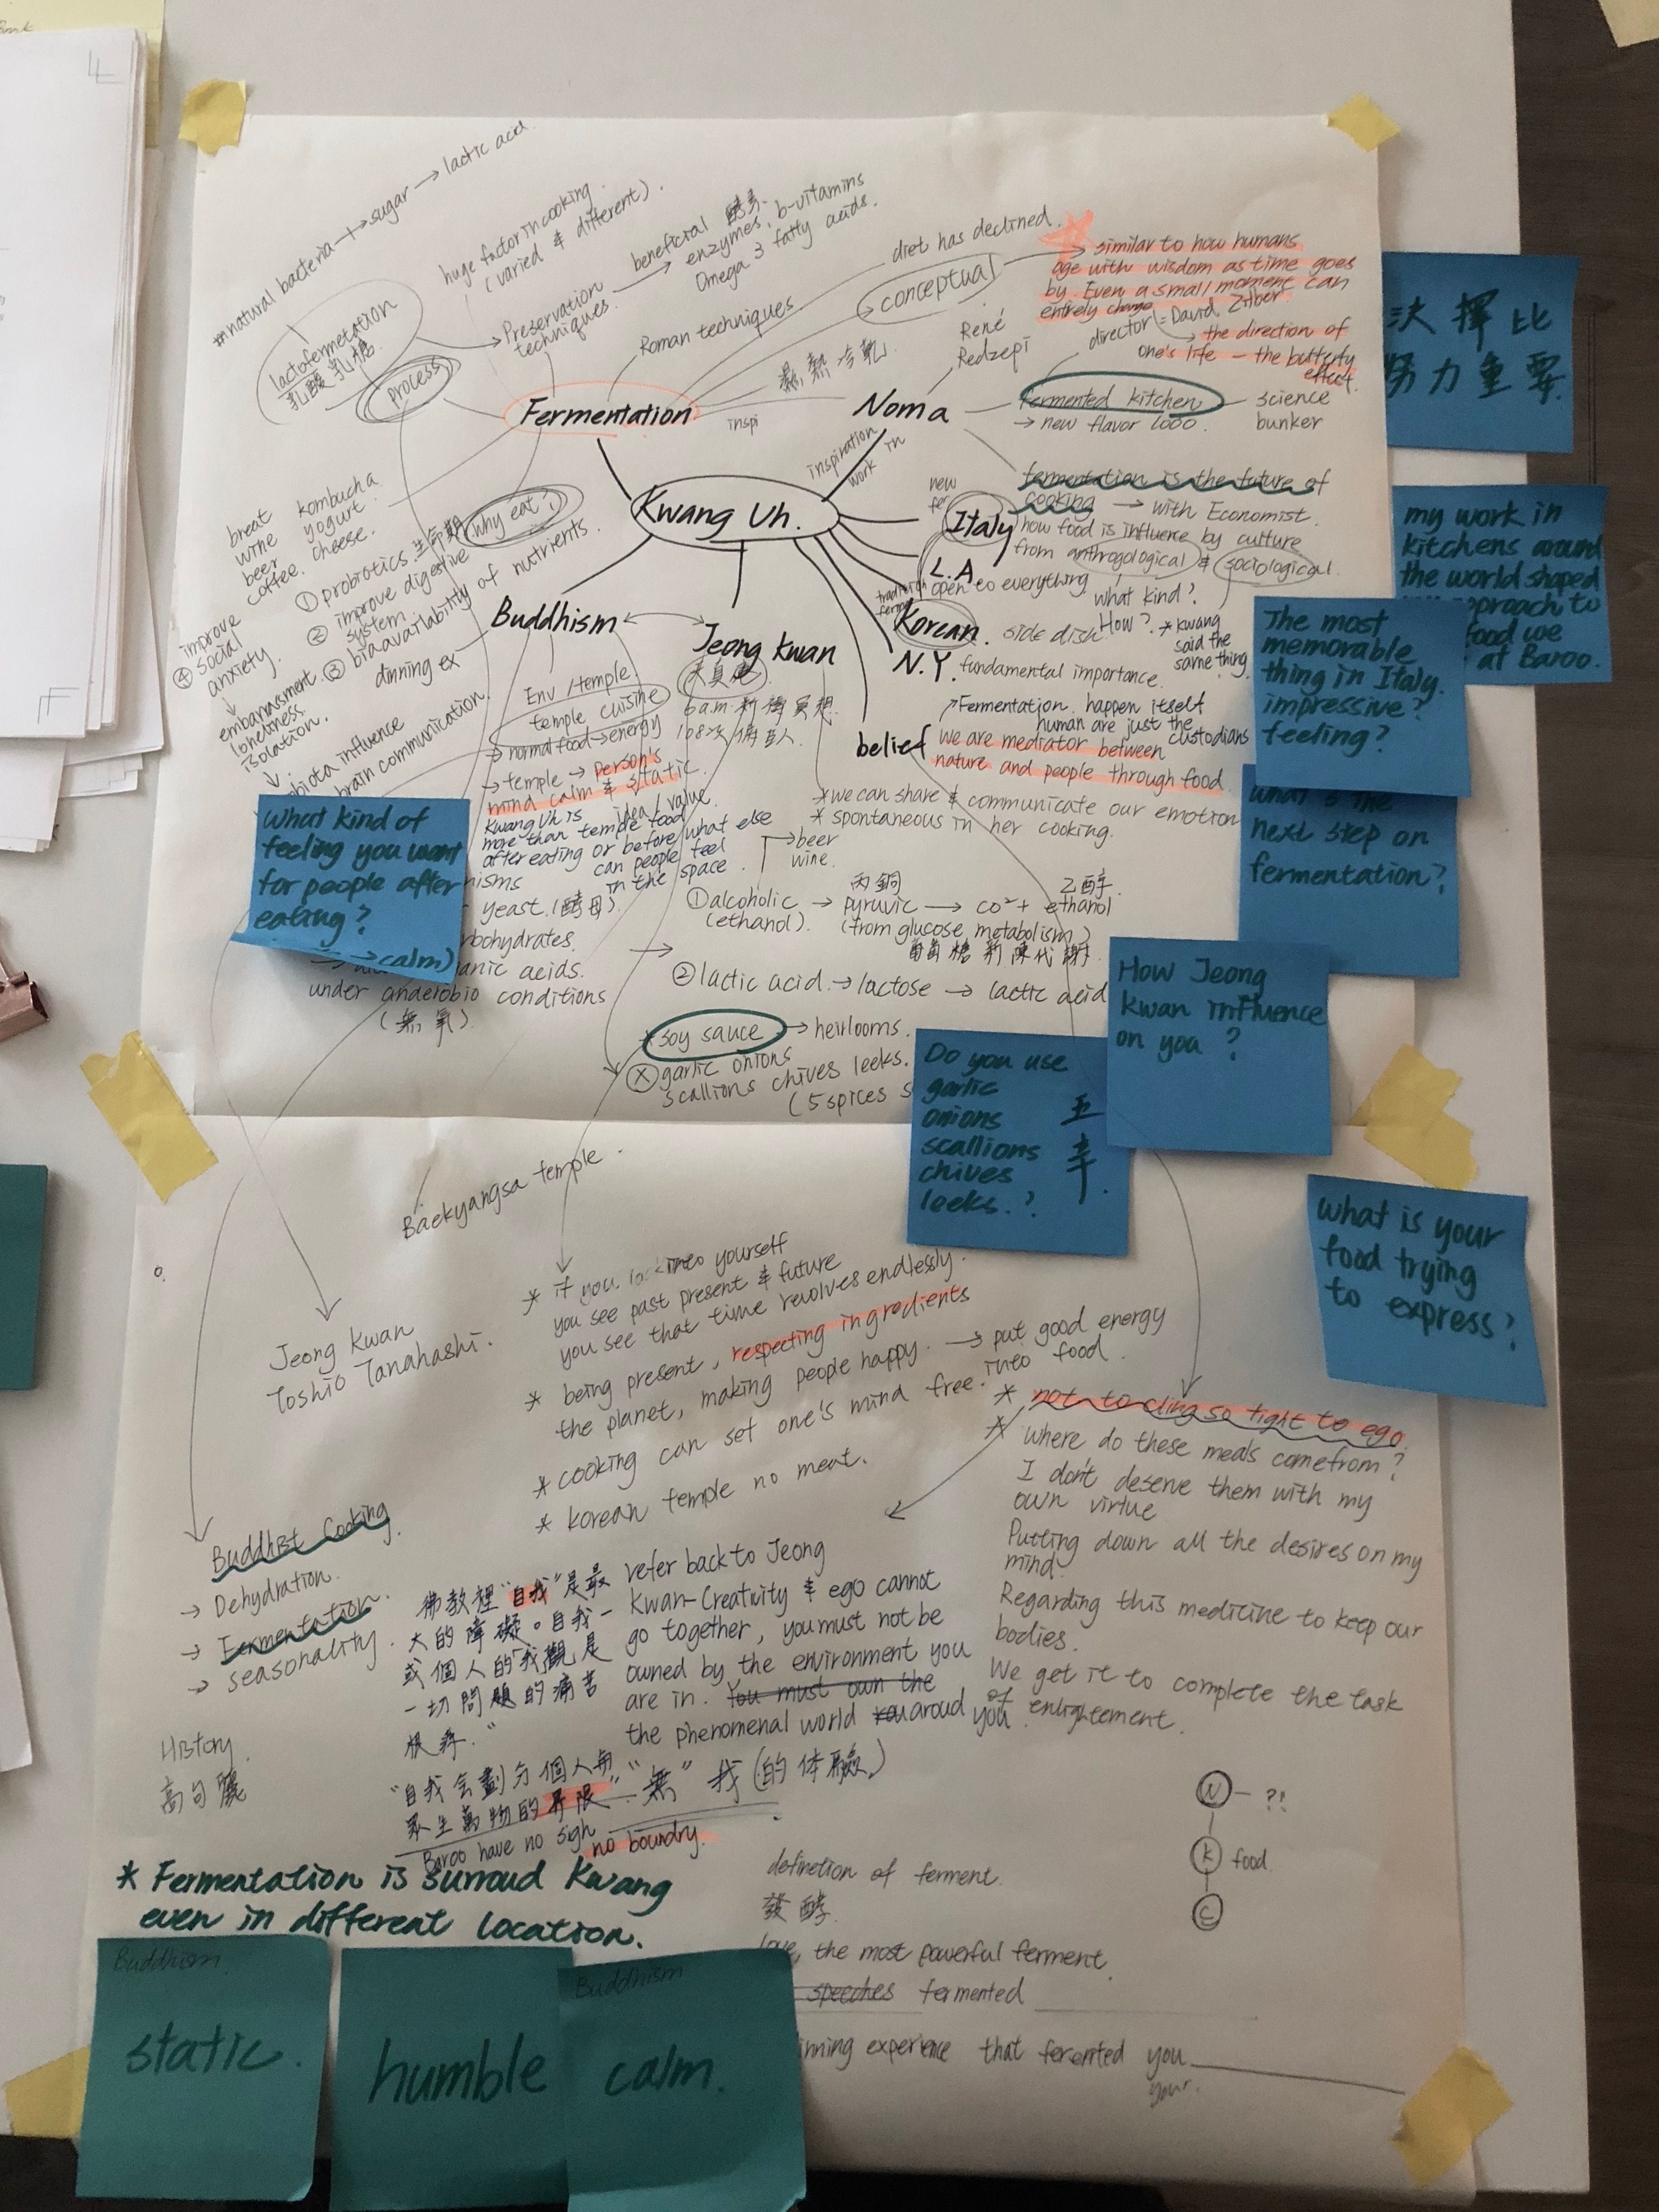 natural bacteria → sugar → lactic acid
lactofermetation
process
huge factor in cooking
(varied & different).
Preservation
techniques.
beneficial 酵素.
enzymes, b-vitamins
Omega 3 fatty acids.
Roman techniques
diet has declined.
conceptual
→ similar to how humans
age with wisdom as time goes
by. Even a small moment can
entirely change
→ the direction of
one's life – the butterfly
effect.
director = David Zilber
René
Redzepi
Fermentation
inspi
Noma
fermented kitchen
→ new flavor 2000.
science
bunker
inspiration
work in
決擇比
努力重要
Kwang Uh.
new
fer
Italy
fermentation is the future of
cooking → with Economist.
how food is influence by culture
from anthrogological & sociological.
what kind?
How?
* Kwang
said the
same thing.
L.A
open to everything
Korean.
side dish
N.Y.
fundamental importance.
belief
↗Fermentation happen itself
human are just the
custodians
we are mediator between
nature and people through food.
* we can share & communicate our emotion
* spontaneous in her cooking.
my work in
kitchens around
the world shaped
food we
at Baroo.
The most
memorable
thing in Italy.
impressive?
feeling?
next step on
fermentation?
breat kombucha
wine yogurt
beer cheese.
coffee.
why eat?
① probiotics.
② improve digestive
system
③ biaavailability of nutrients.
dinning ex
improve
④ social
anxiety.
↓
embanassment.
loneliness.
isolation.
obiota influence
brain communication.
Buddhism
Env / temple
temple cuisine
→ normal food → energy
→ temple → person's
mind calm & static.
idea / value.
Kwang Uh is
more than temple food
after eating or before what else
can people feel
in the space.
Jeong Kwan
What kind of
feeling you want
for people after
eating?
→ calm)
nisms
yeast. (酵母).
bohydrates.
anic acids.
under anderobio conditions
(無氧).
→ beer
wine.
① alcoholic → pyruvic → co²+ ethanol
(ethanol). (from glucose metabolism)
丙銅
乙醇.
葡萄糖新陳代謝
② lactic acid → lactose → lactic acid
* soy sauce → heirlooms.
(X) garlic onions
scallions chives leeks.
(5 spices s
Do you use
garlic
onions
scallions
chives
leeks.?
五
辛.
How Jeong
Kwan influence
on you?
What is your
food trying
to express?
Baekyangsa temple.
Jeong Kwan
Toshio Tanahashi.
* if you look into yourself
you see past present & future
you see that time revolves endlessly.
* being present, respecting ingredients
the planet, making people happy. → put good energy
into food.
* cooking can set one's mind free.
* Korean temple no meat.
* not to cling so tight to ego
* Where do these meals come from?
I don't deserve them with my
own virtue
Putting down all the desires on my
mind.
Regarding this medicine to keep our
bodies.
We get it to complete the task
of enlightement.
Buddhist Cooking.
→ Dehydration.
→ Fermentation.
→ seasonality.
History.
高句麗
佛教裡"自我"是最
大的障礙。自我一
或個人的"我觀是
一切問題的痛苦
根源."
"自我会劃分個人與
眾生萬物的界限"
"無"我(的体驗)
Baroo have no sign no boundry.
refer back to Jeong
Kwan-Creativity & ego cannot
go together, you must not be
owned by the environment you
are in. You must own the
the phenomenal world you aroud you.
* Fermentation is surroud Kwang
even in different location.
N — ?!
K food.
C
definetion of ferment.
發酵.
love, the most powerful ferment.
speeches fermented
inning experience that feremted you
your.
Buddhism.
static.
humble
Buddhism
calm.